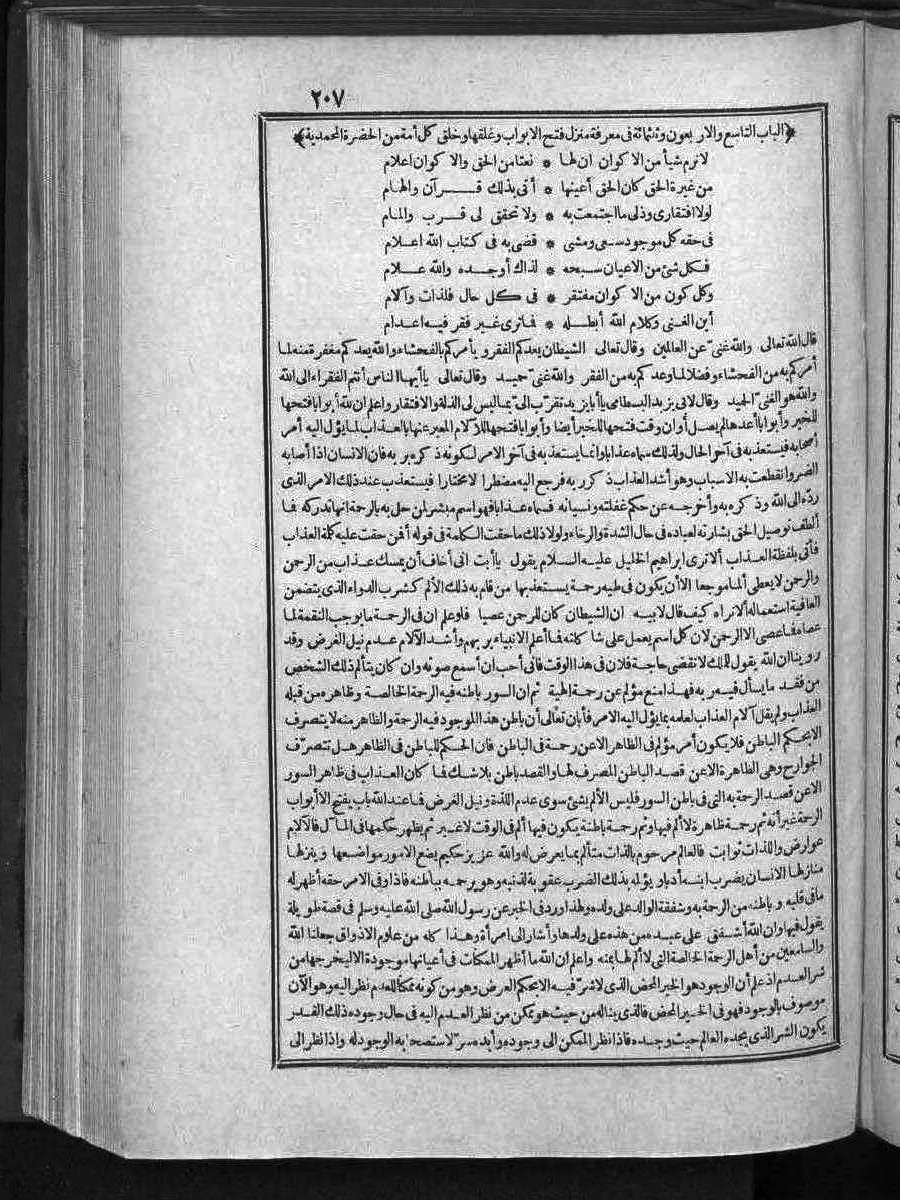 ٢٠٧
﴿الباب التاسع والاربعون وثلثمائة فى معرفة منزل فتح الابواب وغلقها وخلق كل أمة من الحضرة المحمدية﴾
لا ترم شيأ من الاكوان ان لها * نعتا من الحق والاكوان اعلام
من غيرة الحق كان الحق أعينها * أتى بذلك قــرآن والهام
لولا افتقارى وذلى ما اجتمعت به * ولا تحقق لى قــرب والمام
فى حقه كل موجود سعى ومشى * قضى به فى كتاب الله اعلام
فكل شئ من الاعيان سبحه * لذاك أوجده والله عــلام
وكل كون من الاكوان مفتقر * فى كل حال فلذات وآلام
أين الغنى وكلام الله أبطله * فما ترى غير فقر فيه اعدام
قال الله تعالى والله غنى عن العالمين وقال تعالى الشيطان يعدكم الفقر ويأمركم بالفحشاء والله يعدكم مغفرة منه لما
أمركم به من الفحشاء وفضلا لما وعدكم به من الفقر والله غنى حميد وقال تعالى ياأيها الناس أنتم الفقراء الى الله
والله هو الغنى الحميد وقال لابى يزيد البسطامى ياأبا يزيد تقرب الى بما ليس لى الذلة والافتقار واعلم ان لله أبوابا فتحها
للخير وأبوابا أعدها لم يصل أوان وقت فتحها للخير أيضا وأبوابا فتحها للآلام المعبر عنها بالعذاب لما يؤل اليه أمر
أصحابه فيستعذبه فى آخر الحال ولذلك سماه عذابا وانما يستعذبه فى آخر الامر لكونه ذكره بربه فان الانسان اذا أصابه
الضر وانقطعت به الاسباب وهو أشد العذاب ذكر ربه فرجع اليه مضطرا لا مختارا فيستعذب عند ذلك الامر الذى
رده الى الله وذكره به وأخرجه عن حكم غفلته ونسيانه فسماه عذابا فهو اسم مبشر لمن حل به بالرحمة انها تدركه فما
ألطف توصيل الحق بشارته لعباده فى حال الشدة والرخاء ولولا ذلك ما حقت الكلمة فى قوله أفمن حقت عليه كلمة العذاب
فأتى بلفظة العذاب ألا ترى ابراهيم الخليل عليه السلام يقول ياأبت انى أخاف أن يمسك عذاب من الرحمن
والرحمن لا يعطى ألما موجعا الا أن يكون فى طيه رحمة يستعذبها من قام به ذلك الالم كشرب الدواء الذى يتضمن
العافية استعماله ألا تراه كيف قال لابيه ان الشيطان كان للرحمن عصيا فلو علم ان فى الرحمة ما يوجب النقمة لما
عصاه فما عصى الا الرحمن لان كل اسم يعمل على شاكلته فما أعلم الانبياء بربهم وأشد الآلام عدم نيل الغرض وقد
روينا ان الله يقول للملك لا تقضى حاجة فلان فى هذا الوقت فانى أحب ان أسمع صوته وان كان يتألم ذلك الشخص
من فقد ما يسأل فيه ربه فهذا منع مؤلم عن رحمة الهية ثم ان السور باطنه فيه الرحمة الخالصة وظاهره من قبله
العذاب ولم يقل آلام العذاب لعلمه بما يؤل اليه الامر فأبان تعالى أن باطن هذا الموجود فيه الرحمة والظاهر منه لا يتصرف
الا بحكم الباطن فلا يكون أمر مؤلم فى الظاهر الا عن رحمة فى الباطن فان الحكم للباطن فى الظاهر هل تتصرف
الجوارح وهى الظاهرة الا عن قصد الباطن المصرف لها والقصد باطن بلا شك فما كان العذاب فى ظاهر السور
الا عن قصد الرحمة به التى فى باطن السور فليس الالم بشئ سوى عدم اللذة ونيل الغرض فما عند الله باب يفتح الا أبواب
الرحمة غير أنه ثم رحمة ظاهرة لا ألم فيها وثم رحمة باطنة يكون فيها ألم فى الوقت لا غير ثم يظهر حكمها فى المآل فالآلام
عوارض واللذات ثوابت فالعالم مرحوم بالذات متألم بما يعرض له والله عزيز حكيم يضع الامور مواضعها وينزلها
منازلها الانسان يضرب ابنه أدبا ويؤلمه بذلك الضرب عقوبة لذنبه وهو يرحمه بباطنه فاذا وفى الامر حقه أظهر له
ما فى قلبه وباطنه من الرحمة به وشفقة الوالد على ولده ولهذا ورد فى الخبر عن رسول الله صلى الله عليه وسلم فى قصة طويلة
يقول فيها وان الله أشفق على عبده من هذه على ولدها وأشار الى امرأة وهذا كله من علوم الاذواق جعلنا الله
والسامعين من أهل الرحمة الخالصة التى لا ألم لها بمنه واعلم ان الله ما أظهر الممكنات فى أعيانها موجودة الا ليخرجها من
شر العدم اذ علم أن الوجود هو الخير المحض الذى لا شر فيه الا بحكم العرض وهو من كونه ممكنا للعدم نظر اليه وهو الآن
موصوف بالوجود فهو فى الخير المحض فالذى يناله من حيث هو ممكن من نظر العدم اليه فى حال وجوده ذلك القدر
يكون الشر الذى يجده العالم حيث وجده فاذا نظر الممكن الى وجوده وأبده سر لاستصحابه الوجود له واذا نظر الى